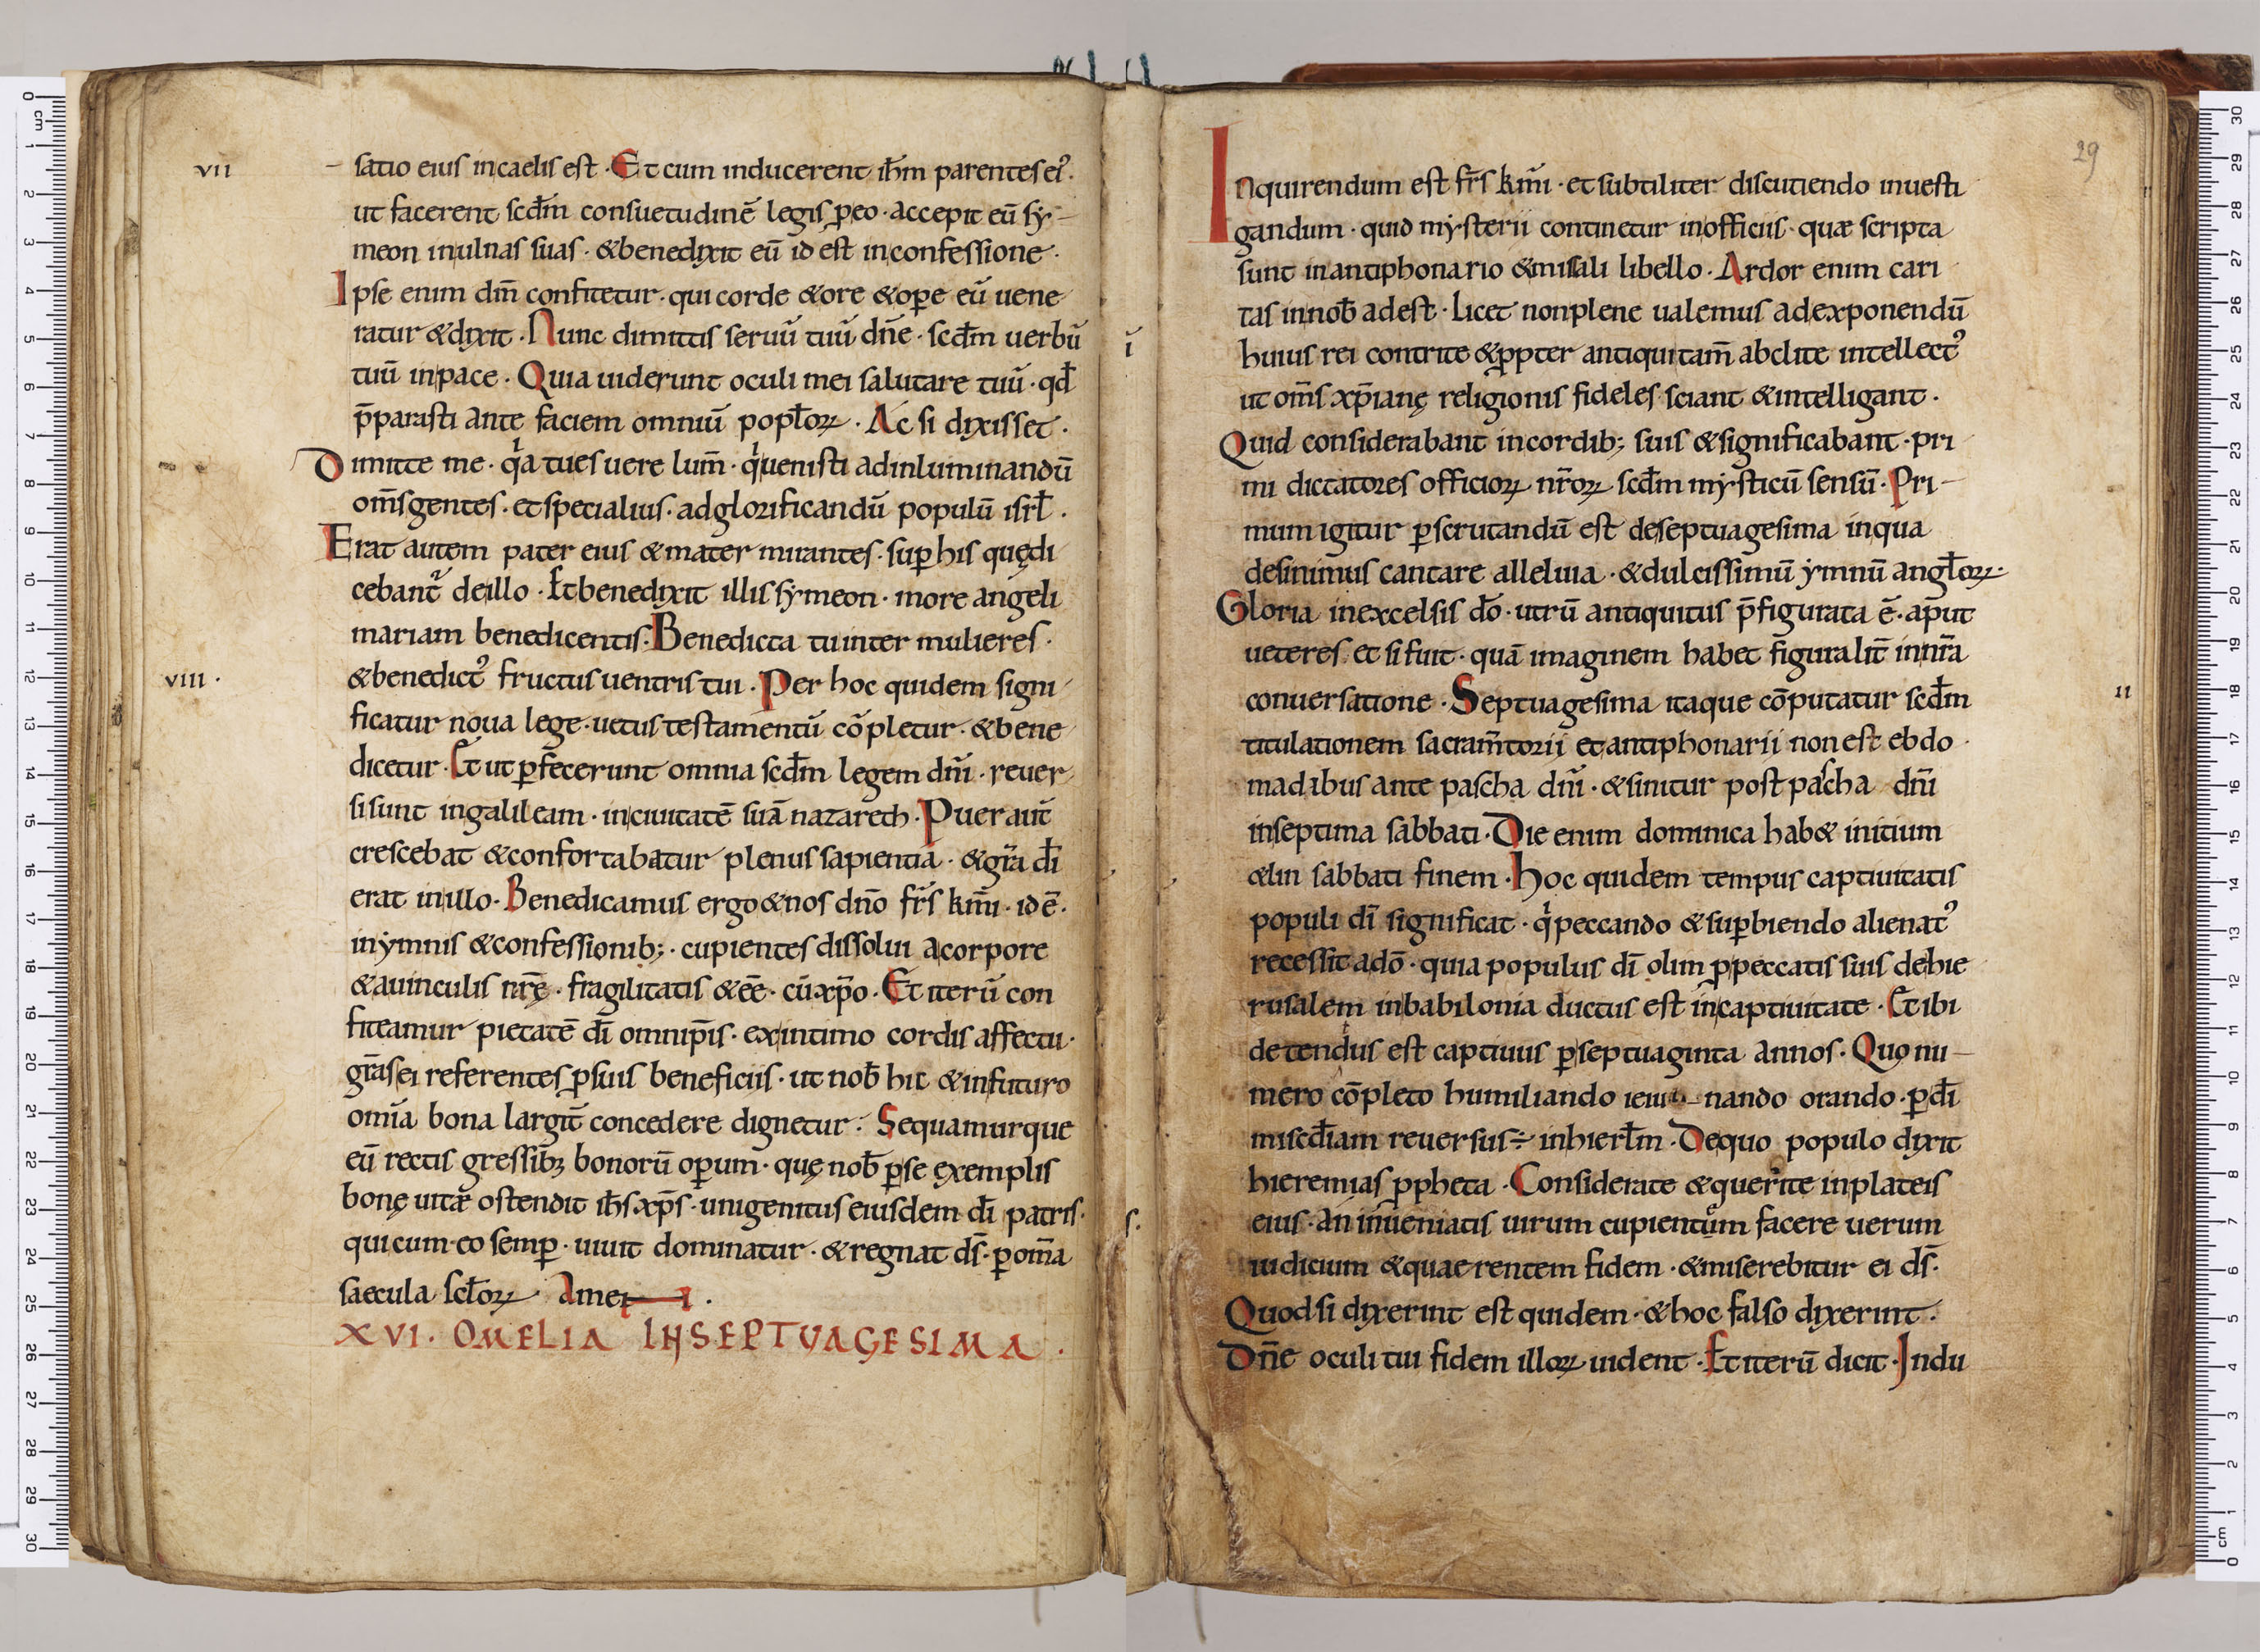 vii
satio eius incaelis est · Et cum inducerent ih̄m parentes ei᾿.
ut facerent scđm consuetudinē legis ꝑeo · accepit eū sẏ-
meon inulnas suas · &benedixit eū id est inconfessione ·
Ipse enim dm̄ confitetur · qui corde &ore &oꝑe eū uene
ratur &dixit · Nunc dimittis seruū tuū dn̄e · scđm uerbū
tuū inpace · Quia uiderunt oculi mei salutare tuū · qđ
p̄parasti ante faciem omniū popl̄oꝝ · Ac si dixisset ·
Dimitte me · qͥa tues uere lum̄ · qͥuenisti adinluminandū
om̄s gentes · et specialius · adglorificandū populū isrł ·
Erat autem pater eius &mater mirantes · suꝑ his quędi
cebant᷑ deillo · Et benedixit illis sẏmeon · more angeli
mariam benedicentis · Benedicta tuinter mulieres ·
viii ·
&benedict᾿ fructus uentris tui · Per hoc quidem signi
ficatur noua lege · uetus testamentū cōpletur · &bene
dicetur · Et ut ꝑfecerunt omnia scđm legem dn̄i · reuer
sisunt ingalileam · inciuitatē suā nazareth · Puer aut̄
crescebat &confortabatur plenus sapientia · &gr̄a dī
erat inillo · Benedicamus ergo &nos dn̄o fr̄s km̄i · idē ·
inẏmnis &confessionib; · cupientes dissolui acorpore
&auinculis nr̄ę · fragilitatis &eē · cūxp̄o · Et iterū con
fiteamur pietatē dī omnip̄is · exintimo cordis affectu ·
gr̄as ei referentes ꝓsuis beneficiis · ut nob̄ hic &infuturo
omīa bona largit̄ concedere dignetur · Sequamurque
eū rectis gressibꝫ bonorū oꝑum · quę nob̄ ꝑse exemplis
bonę uitæ ostendit ih̄s xp̄s · unigenitus eiusdem dī patris ·
qui cum eo semꝑ · uiuit dominatur · &regnat ds̄ · ꝑ om̄a
saecula scl̄oꝝ Amen ·
XVI · OMELIA INSEPTUAGESIMA ·
29
Inquirendum est fr̄s km̄i · et subtiliter discutiendo inuesti
gandum · quid mẏsterii continetur inofficiis · quæ scripta
sunt inantiphonario &misali libello · Ardor enim cari
tas innob̄ adest · Licet nonplene ualemus adexponendū
huius rei contrite &ꝓpter antiquitam̄ abclite intellect᾿
ut om̄s xp̄ianę religionis fideles sciant &intelligant ·
Quid considerabant incordib; suis &significabant · pri
mi dictatores officioꝝ nr̄oꝝ scđm mẏsticū sensū · Pri-
mum igitur ꝑscrutandū est deseptuagesima inqua
desinimus cantare alleluia · &dulcissimū ẏmnū angl̄oꝝ ·
Gloria inexcelsis dō · utrū antiquitus p̄figurata ē · aput
ueteres · et si fuit · quā imaginem habet figuralit̄ innr̄a
conuersatione · Septuagesima itaque cōputatur scđm
ii
titulationem sacram̄torii et antiphonarii non est ebdo
madibus ante pascha dn̄i · &finitur post pascha dn̄i
inseptima sabbati · Die enim dominica hab& initium
&in sabbati finem · Hoc quidem tempus captiuitatis
populi dī significat · qͥpeccando &suꝑbiendo alienat᾿
recessit adō · quia populus dī olim ꝓpeccatis suis dehie
rusalem inbabilonia ductus est incaptiuitate · Et ibi
detendus est captiuus ꝑseptuaginta annos · Quo nu-
mero cōpleto humiliando ieiu-nando orando · ꝑdī
miscđiam reuersus ÷ inhierl̄m · Dequo populo dixit
hieremias ꝓpheta · Considerate &querite inplateis
eius · an inueniatis uirum cupientum facere uerum
iudicium &quaerentem fidem · &miserebitur ei ds̄ ·
Quodsi dixerint est quidem · &hoc falso dixerint ·
Dn̄e oculi tui fidem illoꝝ uident · Et iterū dicit · Indu